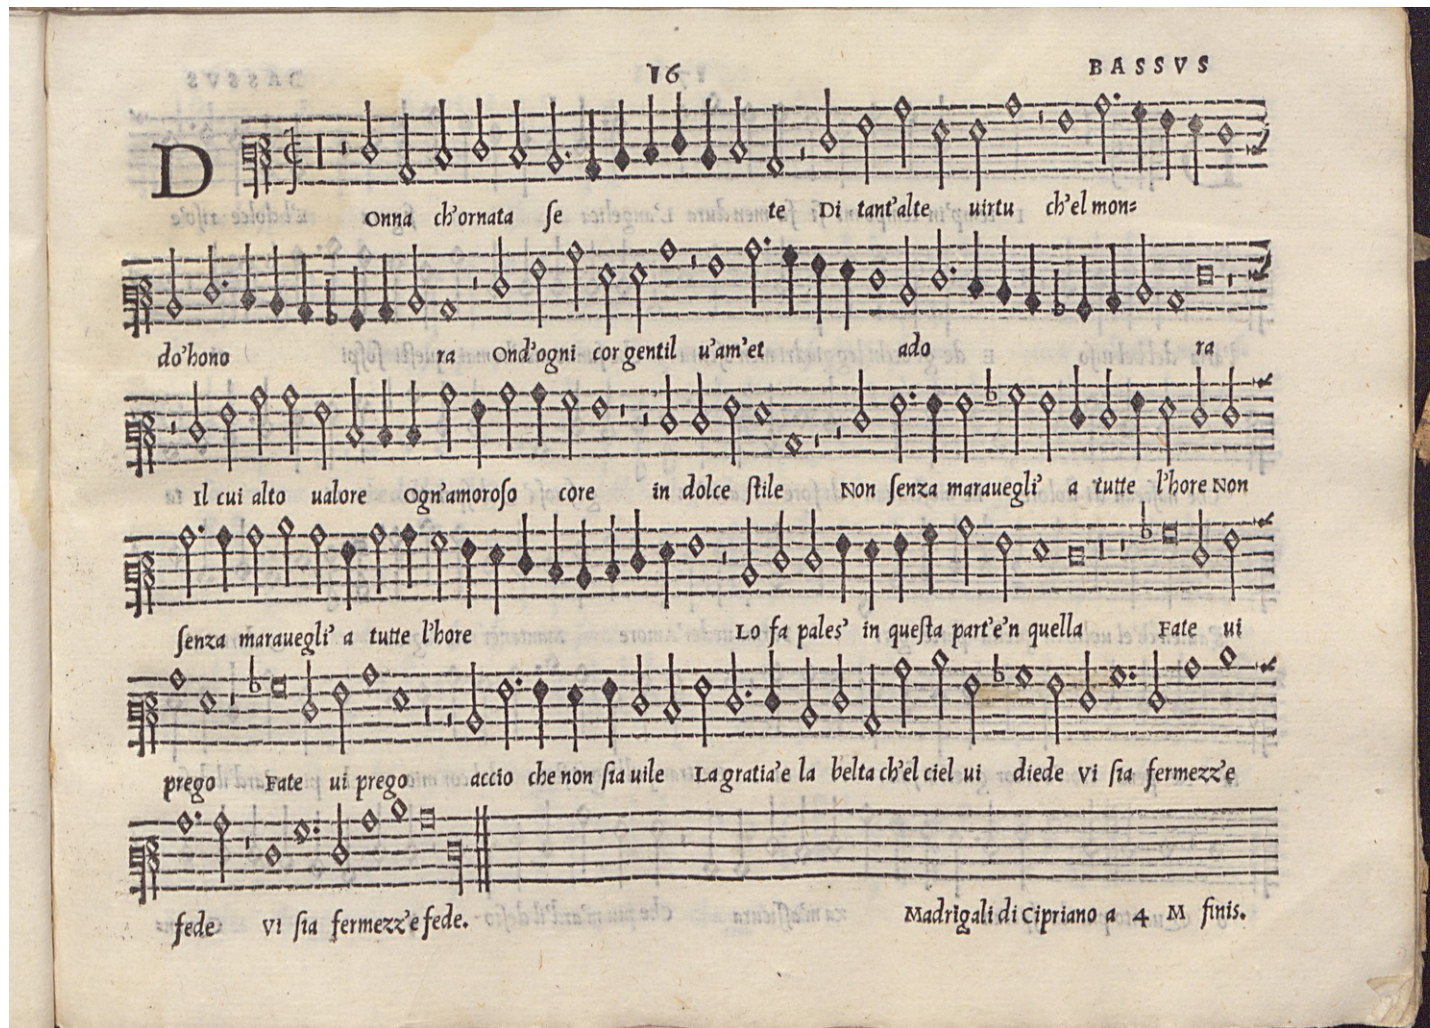 16
BASSVS
DOnna ch'ornata se te Di tant'alte uirtu ch'el mon=
do'hono ra Ond'ogni cor gentil u'am'et ado ra
Il cui alto ualore Ogn'amoroso core in dolce stile Non senza marauegli' a tutte l'hore Non
senza marauegli' a tutte l'hore Lo fa pales' in questa part'e'n quella Fate ui
prego Fate ui prego accio che non sia uile La gratia'e la belta ch'el ciel ui diede Vi sia fermezz'e
fede Vi sia fermezz'e fede. Madrigali di Cipriano a 4 M finis.